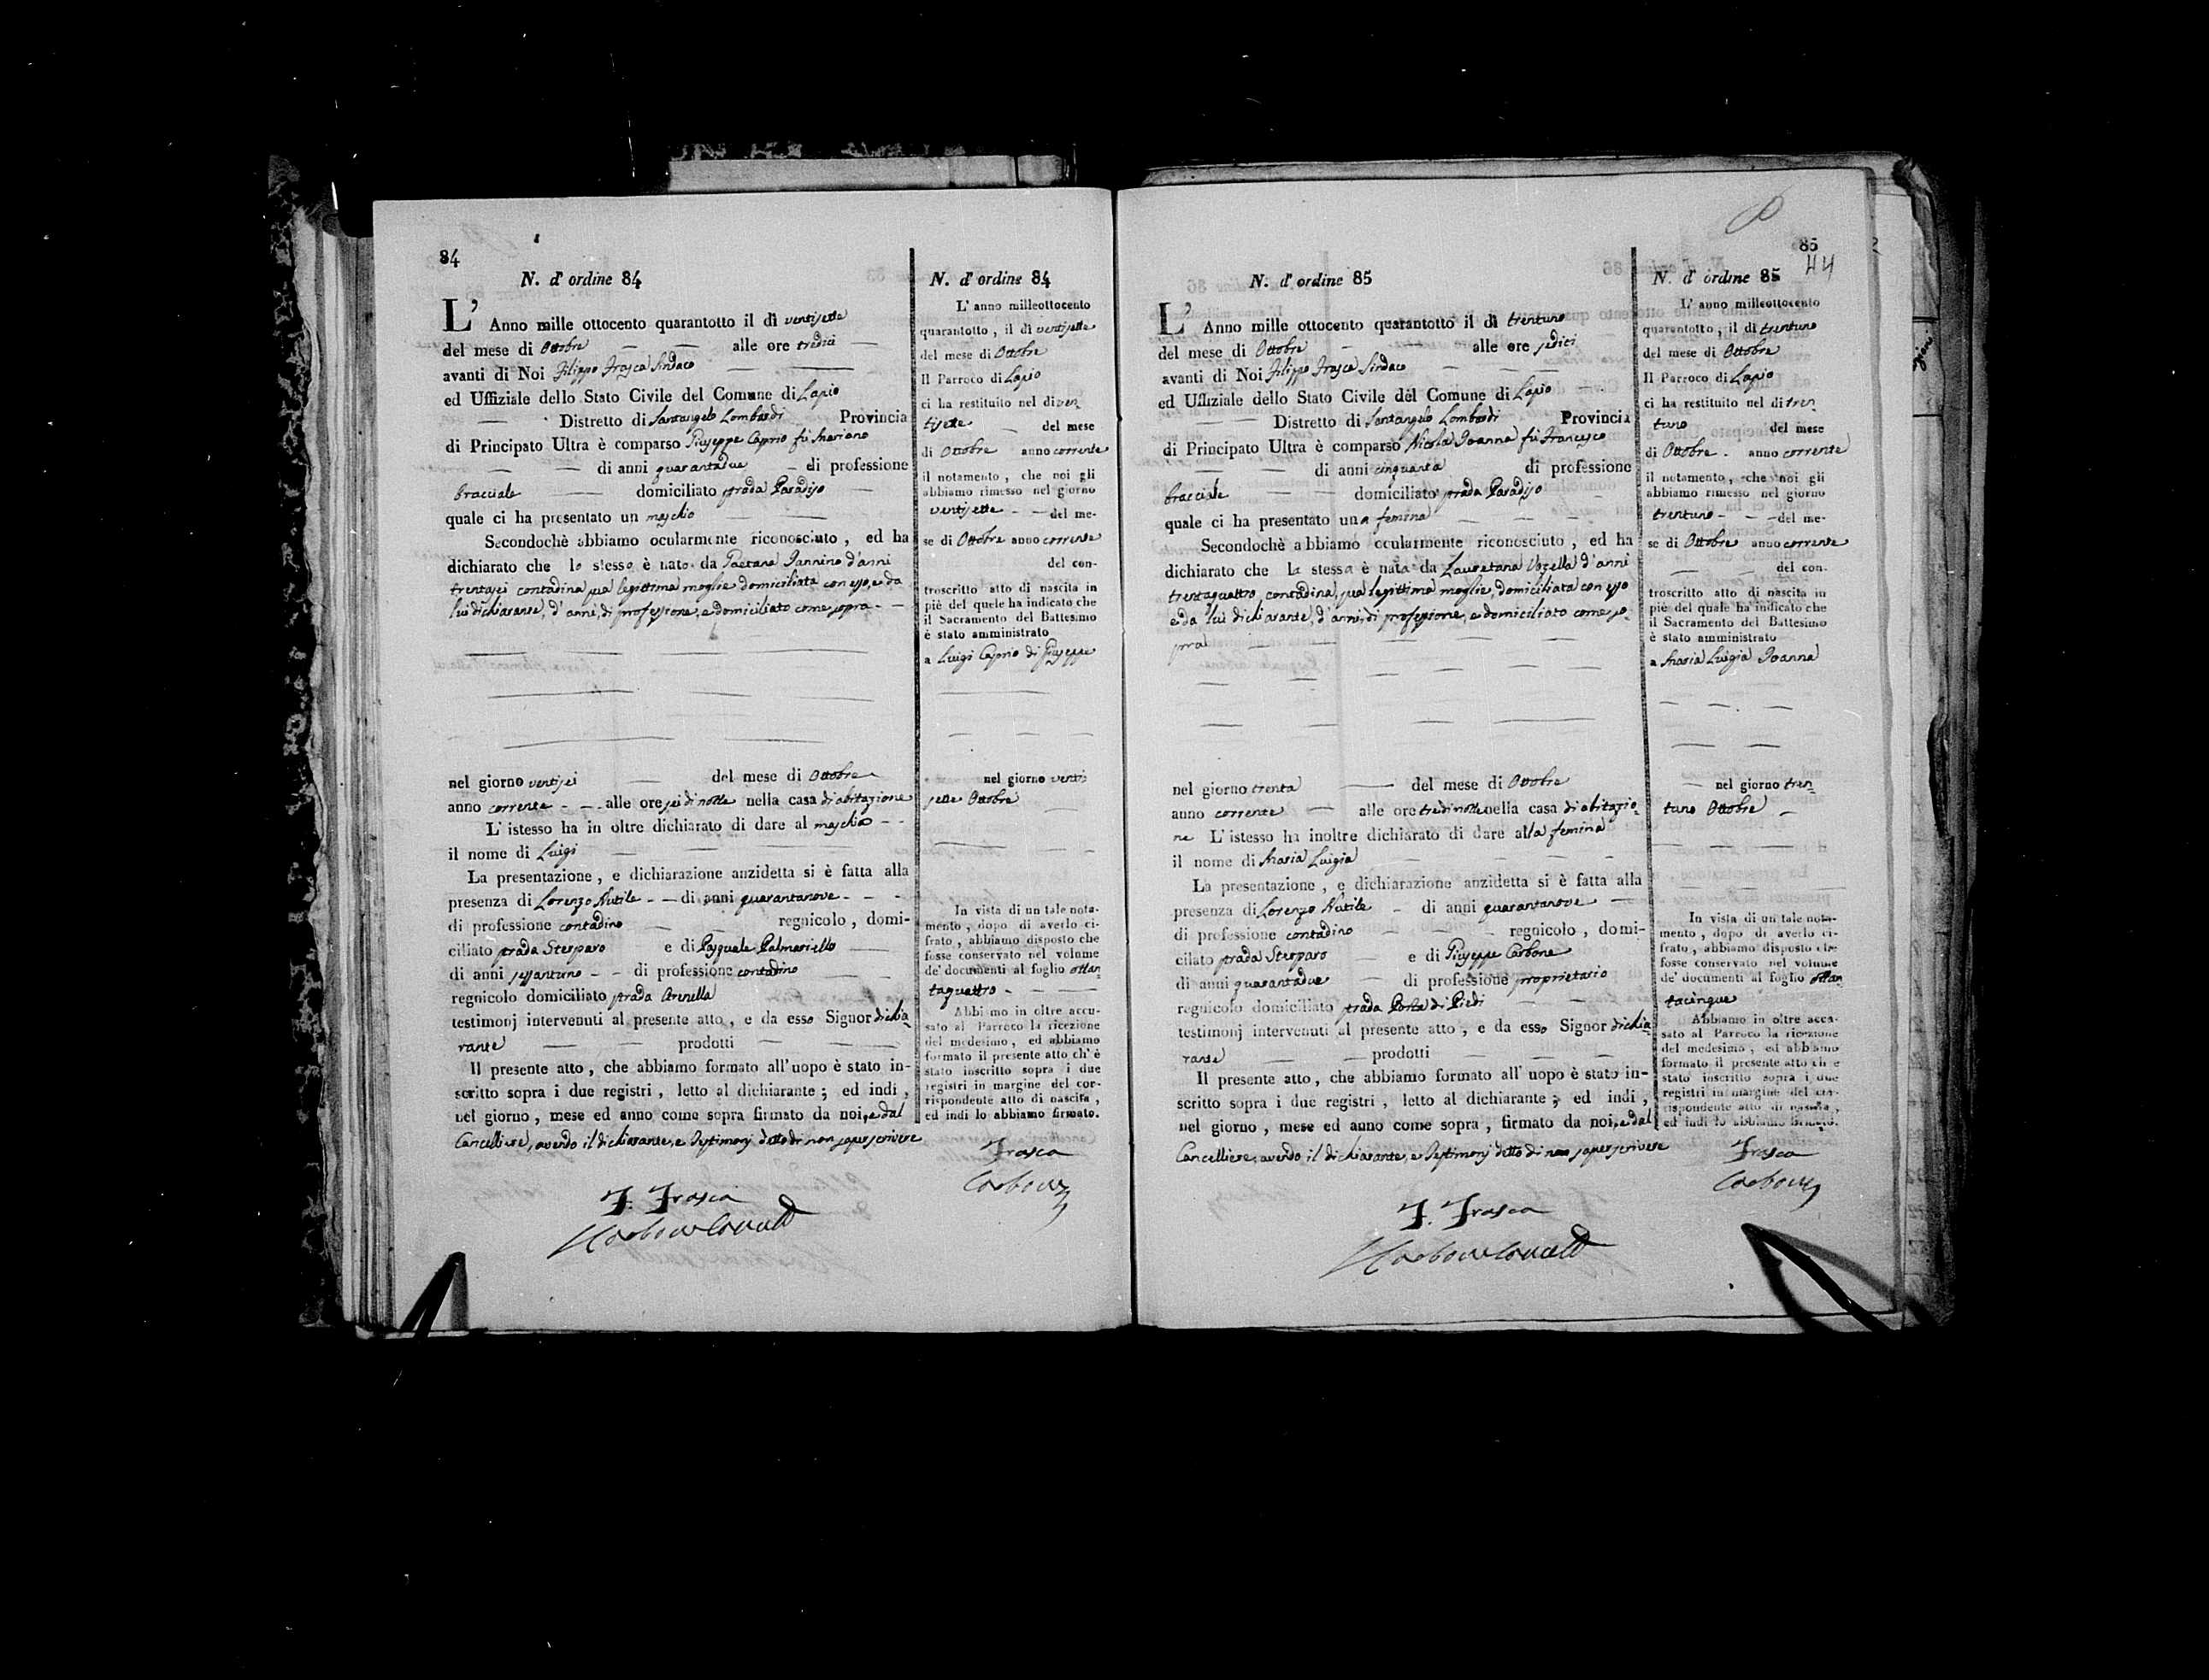 84
N. d'ordine 84
L' Anno mille ottocento quarantotto il dì ventisette
del mese di Ottobre alle ore tredici
avanti di Noi Filippo Frasca Sindaco
ed Uffiziale dello Stato Civile del Comune di Lapio
Distretto di Santangelo Lombardi Provincia
di Principato Ultra è comparso Giuseppe Caprio fù Mariano
di anni quarantadue di professione
bracciale domiciliato strada Paradiso
quale ci ha presentato un maschio
Secondochè abbiamo ocularmente riconosciuto, ed ha
dichiarato che lo stesso è nato da Gaetana Iannino d'anni
trentasei contadina sua legittima moglie domiciliata con esso, e da
lui dichiarante, d'anni, di professione, e domiciliato come sopra
nel giorno ventisei del mese di Ottobre
anno corrente alle ore sei di notte nella casa di abitazione
L'istesso ha in oltre dichiarato di dare al maschio
il nome di Luigi
La presentazione, e dichiarazione anzidetta si è fatta alla
presenza di Lorenzo Nutile di anni quarantanove
di professione contadino regnicolo, domi-
ciliato strada Sterparo e di Pasquale Palmariello
di anni sessantuno di professione contadino
regnicolo domiciliato strada Arenella
testimonj intervenuti al presente atto, e da esso Signor dichia-
rante prodotti
Il presente atto, che abbiamo formato all'uopo è stato in-
scritto sopra i due registri, letto al dichiarante; ed indi,
nel giorno, mese ed anno come sopra firmato da noi, e dal
Cancelliere, avendo il dichiarante, e Testimonj detto di non saper scrivere
F. Frasca
N. d'ordine 84
L'anno milleottocento
quarantotto, il dì ventisette
del mese di Ottobre
Il Parroco di Lapio
ci ha restituito nel dì ven-
tisette del mese
di Ottobre anno corrente
il notamento, che noi gli
abbiamo rimesso nel giorno
ventisette del me-
se di Ottobre anno corrente
del con-
troscritto atto di nascita in
piè del quele ha indicato che
il Sacramento del Battesimo
è stato amministrato
a Luigi Caprio di Giuseppe
nel giorno venti
sette Ottobre
In vista di un tale nota-
mento, dopo di averlo ci-
frato, abbiamo disposto che
fosse conservato nel volume
de' documenti al foglio ottan-
taquattro
Abbiamo in oltre accu-
sato al Parroco la ricezione
del medesimo, ed abbiamo
formato il presente atto ch'è
stato inscritto sopra i due
registri in margine del cor-
rispondente atto di nascita,
ed indi lo abbiamo firmato.
Frasca
Carbone
85
44
N. d'ordine 85
L' Anno mille ottocento quarantotto il dì trentuno
del mese di Ottobre alle ore sedici
avanti di Noi Filippo Frasca Sindaco
ed Uffiziale dello Stato Civile del Comune di Lapio
Distretto di Santangelo Lombardi Provincia
di Principato Ultra è comparso Nicola Ioanna fù Francesco
di anni cinquanta di professione
bracciale domiciliato strada Paradiso
quale ci ha presentato una femina
Secondochè abbiamo ocularmente riconosciuto, ed ha
dichiarato che la stessa è nata da Lauretana Vozella d'anni
trentaquattro, contadina, sua legittima moglie, domiciliata con esso
e da lui dichiarante, d'anni, di professione, e domiciliato come so-
pra
nel giorno trenta del mese di Ottobre
anno corrente alle ore tre di notte nella casa di abitazio-
ne L'istesso ha inoltre dichiarato di dare alla femina
il nome di Maria Luigia
La presentazione, e dichiarazione anzidetta si è fatta alla
presenza di Lorenzo Nutile di anni quarantanove
di professione contadino regnicolo, domi-
cilato strada Sterparo e di Giuseppe Carbone
di anni quarantadue di professione proprietario
regnicolo domiciliato strada Porta di Piedi
testimonj intervenuti al presente atto, e da esso Signor dichia-
rante prodotti
Il presente atto, che abbiamo formato all'uopo è stato in-
scritto sopra i due registri, letto al dichiarante; ed indi,
nel giorno, mese ed anno come sopra, firmato da noi, e dal
Cancelliere, avendo il dichiarante, e Testimonj detto di non saper scrivere
F. Frasca
N. d'ordine 85
L'anno milleottocento
quarantotto, il dì trentuno
del mese di Ottobre
Il Parroco di Lapio
ci ha restituito nel dì tren-
tuno del mese
di Ottobre anno corrente
il notamento, che noi gli
abbiamo rimesso nel giorno
trentuno del me-
se di Ottobre anno corrente
del con-
troscritto atto di nascita in
piè del quale ha indicato che
il Sacramento del Battesimo
è stato amministrato
a Maria Luigia Ioanna
nel giorno tren-
tuno Ottobre
In vista di un tale nota-
mento, dopo di averlo ci-
frato, abbiamo disposto che
fosse conservato nel volume
de' documenti al foglio ottan-
tacinque
Abbiamo in oltre accu-
sato al Parroco la ricezione
del medesimo, ed abbiamo
formato il presente atto ch'è
stato inscritto sopra i due
registri in margine del cor-
rispondente atto di nascita,
ed indi lo abbiamo firmato.
Frasca
Carbone